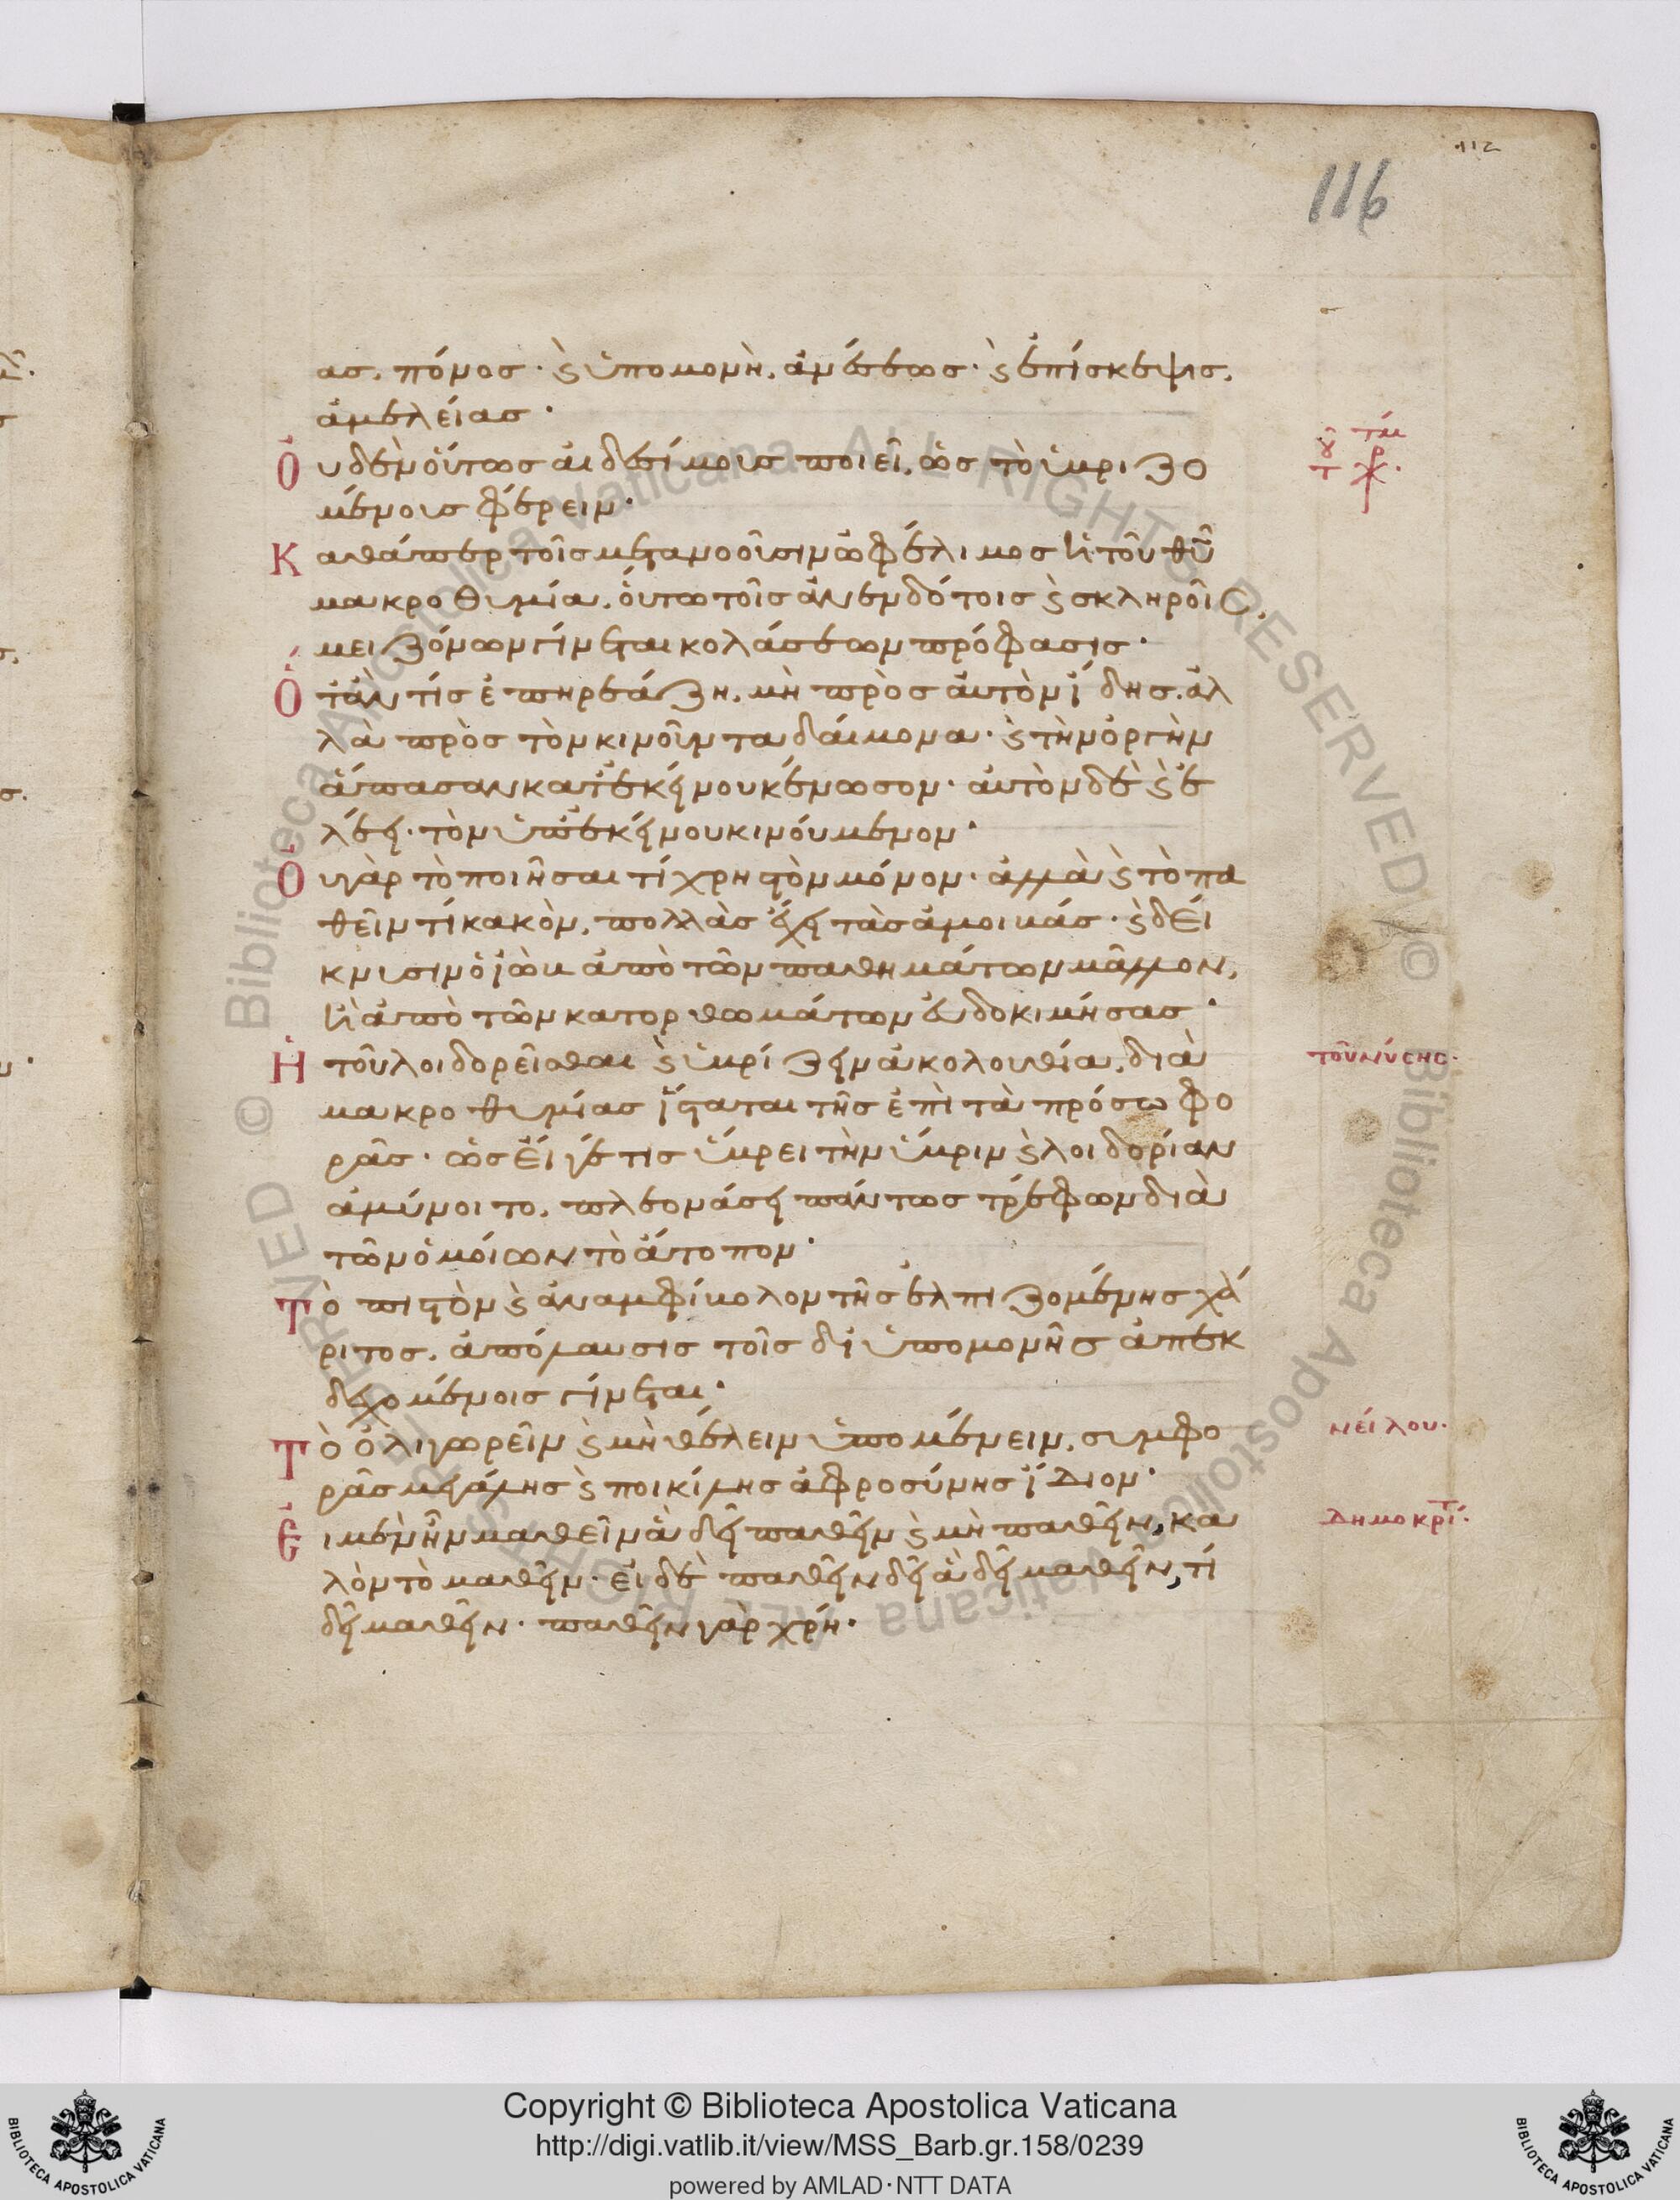 112
116
ας. πόνος· ϗ ὑπομονὴ. ἀνέσεως· ϗ ἐπίσκεψις.
ἀμελείας·
Οὐδὲν οὕτως αἰδεσίμους ποιεῖ. ὡς τὸ ὑβριζο
μένους φέρειν·
Καθάπερ τοῖς μετανοοῦσιν ὠφέλιμος ἡ τοῦ θῦ
μακροθυμία. οὕτω τοῖς ἀνενδότοις ϗ σκληροῖς.
μειζόνων γίνεται κολάσεων πρόφασις·
Ὅταν τίς ἐπηρεάζη. μὴ πρὸς αὐτὸν ἴδης. ἀλ
λὰ πρὸς τὸν κινοῦντα δαίμονα· ϗ τὴν ὀργὴν
ἅπασαν κατ' ἐκείνου κένωσον· αὐτὸν δὲ ϗ ἐ
λέει· τὸν ὑπ' ἐκείνου κινούμενον·
Οὐ γὰρ τὸ ποιῆσαι τί χρηστὸν μόνον· ἀλλὰ ϗ τὸ πα
θεῖν τί κακὸν. πολλὰς ἔχει τὰς ἀμοιβάς· ϗ δεί
κνυσιν ὁ ἰὼβ ἀπὸ τῶν παθημάτων μᾶλλον,
ἢ ἀπὸ τῶν κατορθωμάτων εὐδοκιμήσας·
Ἡ τοῦ λοιδορεῖσθαι ϗ ὑβρίζειν ἀκολουθία. διὰ
μακροθυμίας ἵσταται τῆς ἐπὶ τὰ πρόσω φο
ρᾶς· ὡς εἴγε τις ὕβρει τὴν ὕβριν ϗ λοιδορίαν
ἀμύνοιτο. πλεονάσει πάντως τρέφων διὰ
τῶν ὁμοίων τὸ ἄτοπον·
Τὸ πιστὸν ϗ ἀναμφίβολον τῆς ἐλπιζομένης χά
ριτος. ἀπόλαυσις τοῖς δι' ὑπομονῆς ἀπεκ
δεχομένοις γίνεται·
Τὸ ὀλιγωρεῖν ϗ μὴ θέλειν ὑπομένειν. συμφο
ρᾶς μεγάλης ϗ ποικίλης ἀφροσύνης ἴδιον·
Εἰ μὲν ἦν μαθεῖν ἃ δεῖ παθεῖν ϗ μὴ παθεῖν, κα
λὸν τὸ μαθεῖν· εἰ δὲ παθεῖν δεῖ ἃ δεῖ μαθεῖν, τί
δεῖ μαθεῖν· παθεῖν γὰρ χρή·
τοῦ νύσης·
νείλου·
Δημοκρίτ·
Copyright © Biblioteca Apostolica Vaticana
http://digi.vatlib.it/view/MSS_Barb.gr.158/0239
powered by AMLAD·NTT DATA
BIBLIOTECA APOSTOLICA VATICANA
BIBLIOTECA APOSTOLICA VATICANA
© Biblioteca Apostolica Vaticana ALL RIGHTS RESERVED
© Biblioteca Apostolica Vaticana ALL RIGHTS RESERVED